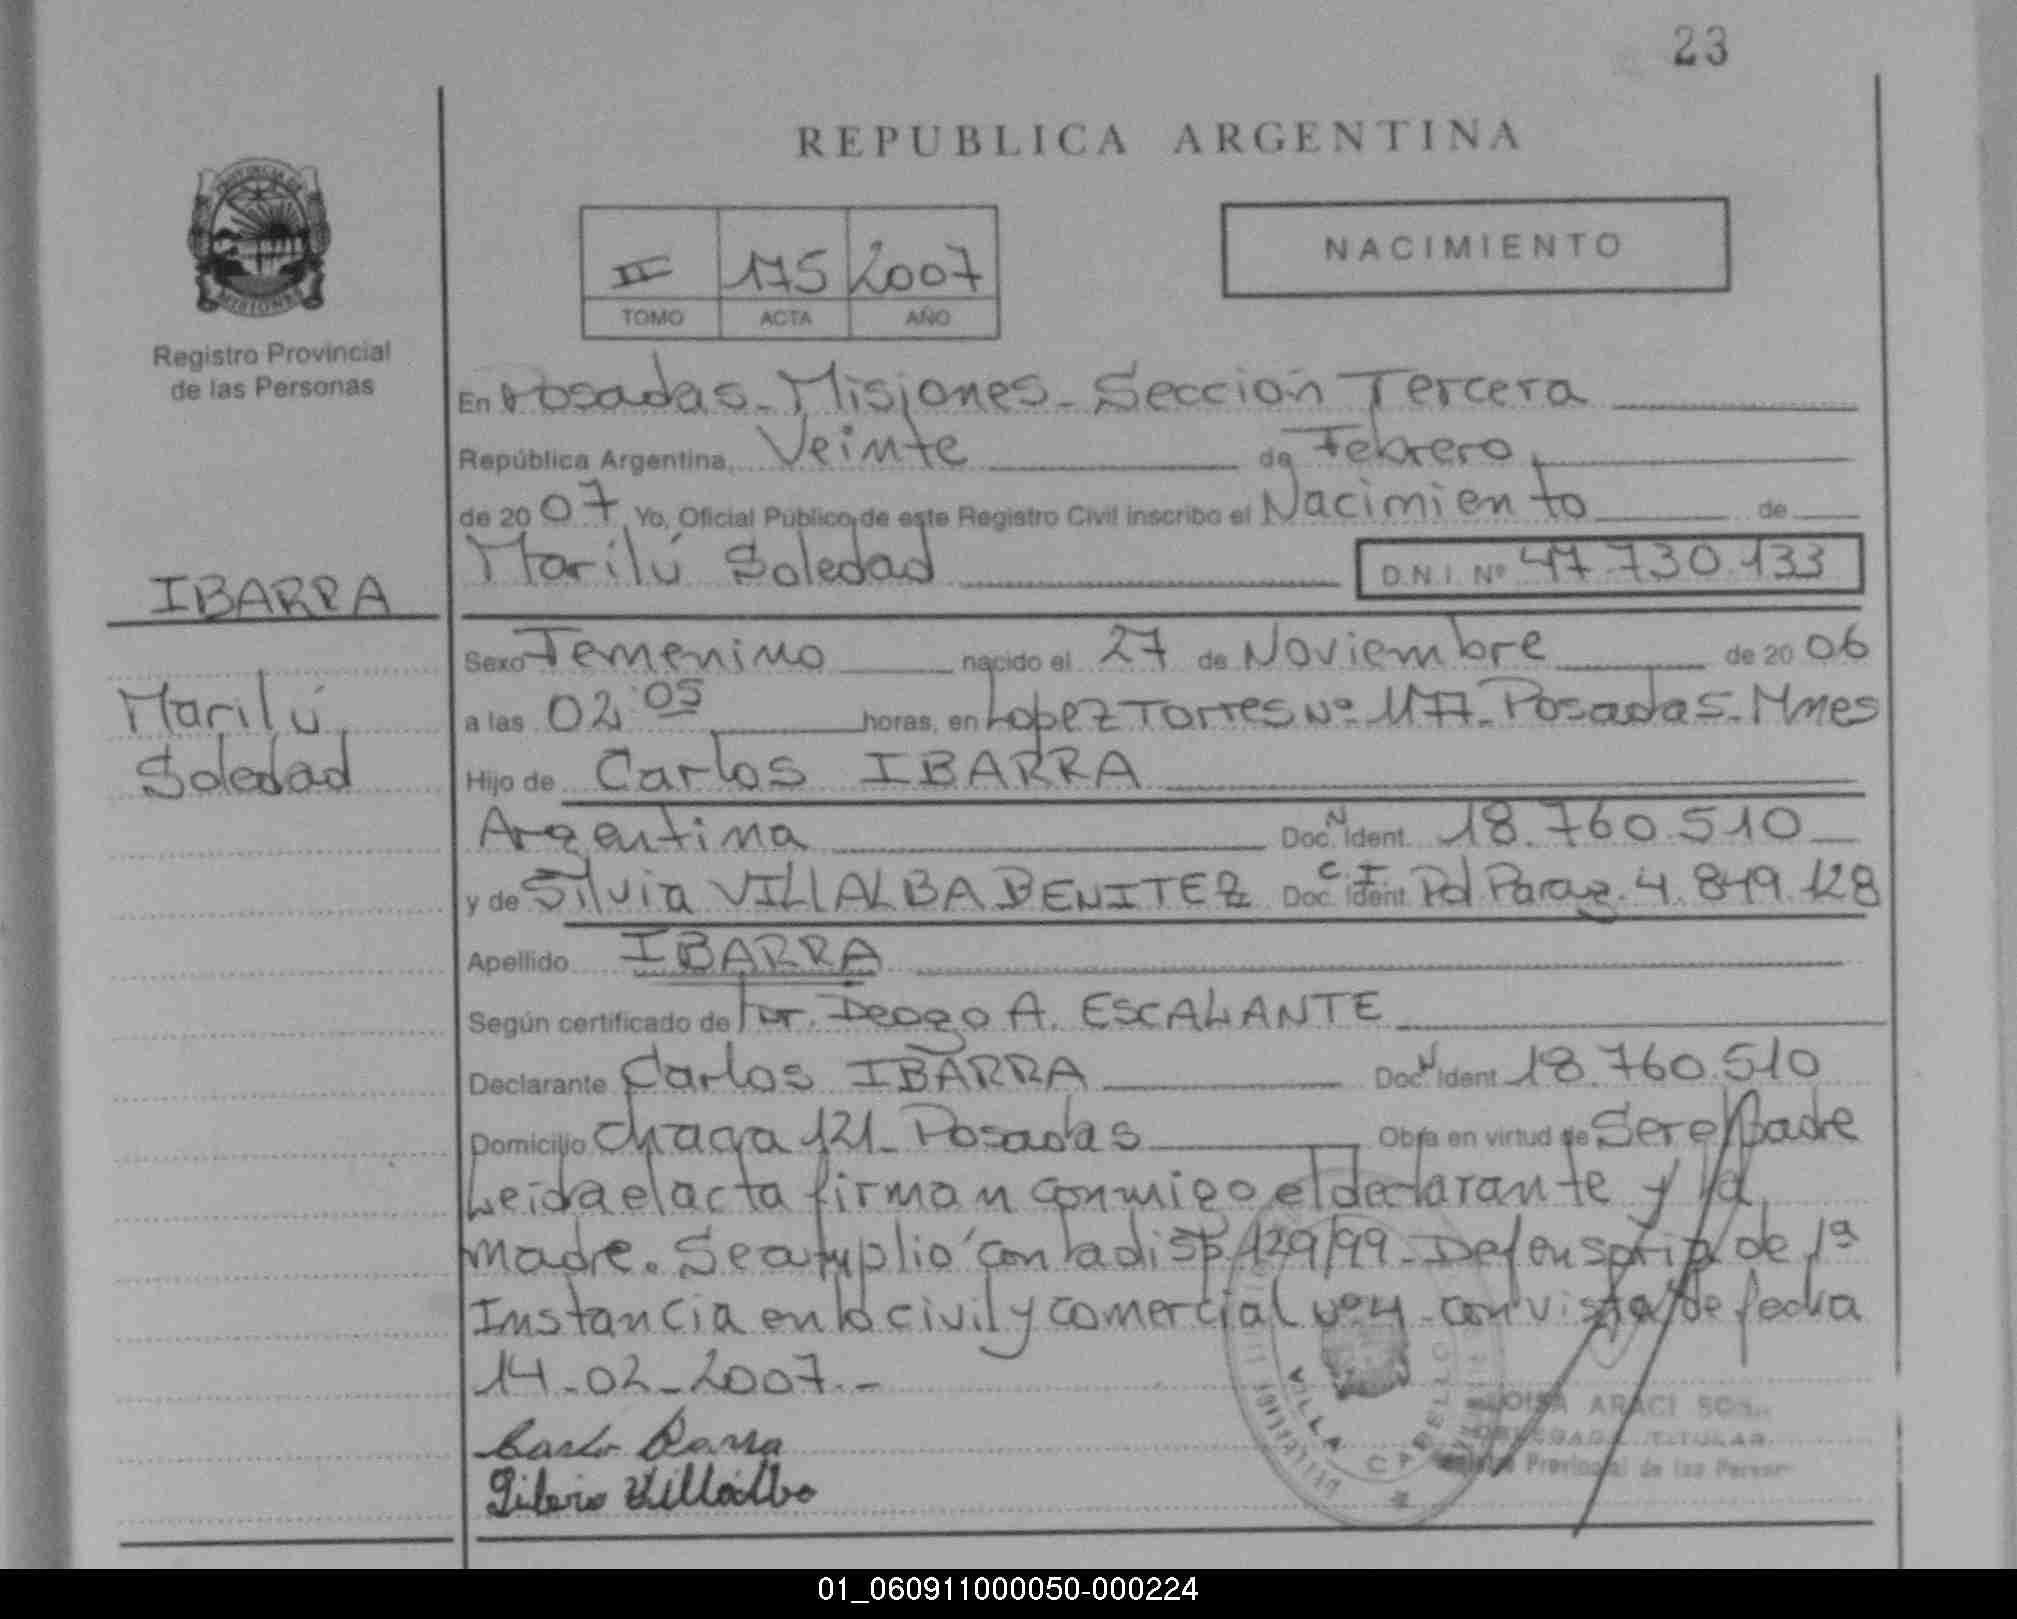 23
REPUBLICA ARGENTINA
PROVINCIA DE
MISIONES
Registro Provincial
de las Personas
II 175 2007
TOMO ACTA AÑO
NACIMIENTO
En Posadas - Misiones - Sección Tercera
República Argentina, Veinte de Febrero
de 2007 Yo, Oficial Público de este Registro Civil inscribo el Nacimiento de
Marilú Soledad D.N.I. Nº 47.730.133
IBARRA
Marilú
Soledad
Sexo Femenino nacido el 27 de Noviembre de 2006
a las 02:05 horas, en Lopez Torres Nº 1177 - Posadas - Mnes
Hijo de Carlos IBARRA
Argentina Doc. N Ident. 18.760.510
y de Silvia VILLALBA BENITEZ Doc. C.I. Ident. Pol. Parag. 4.849.128
Apellido IBARRA
Según certificado de Dr. A. ESCALANTE
Declarante Carlos IBARRA Doc. N Ident 18.760.510
Domicilio chaca 121 - Posadas Obra en virtud de Ser el Padre
Leida el acta firman conmigo el declarante y la
madre. Se cumplio con la disp. 129/99 - Defensoria de 1ª
Instancia en lo civil y comercial Nº 4 - con vista de fecha
14-02-2007.-
Carlos Ibarra
Silvia Villalba
VILLA CABELLO
ARACI
TITULAR
Provincial de las Person
01_060911000050-000224